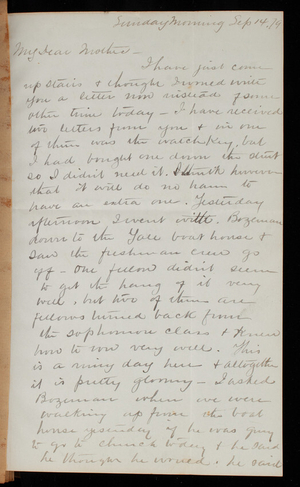 Sunday Morning Sep 14, /9
My Dear Mother -
I have just come
up stairs & thought I would write
you a letter now instead of some
other time today - I have received
two letters from you & in one
of them was the watch key, but
I had bought one down the street
so I didn't need it. I think however
that it will do no harm to
have an extra one. Yesterday
afternoon I went with Bozeman
down to the Yale boat house &
saw the freshman crew go
off - One fellow didn't seem
to get the hang of it very
well, but two of them are
fellows turned back from
the sophomore class & knew
how to row very well. This
is a rainy day here & altogether
it is pretty gloomy - I asked
Bozeman when we were
walking up from the boat
house yesterday if he was going
to go to church today & he said
he thought he would. he said